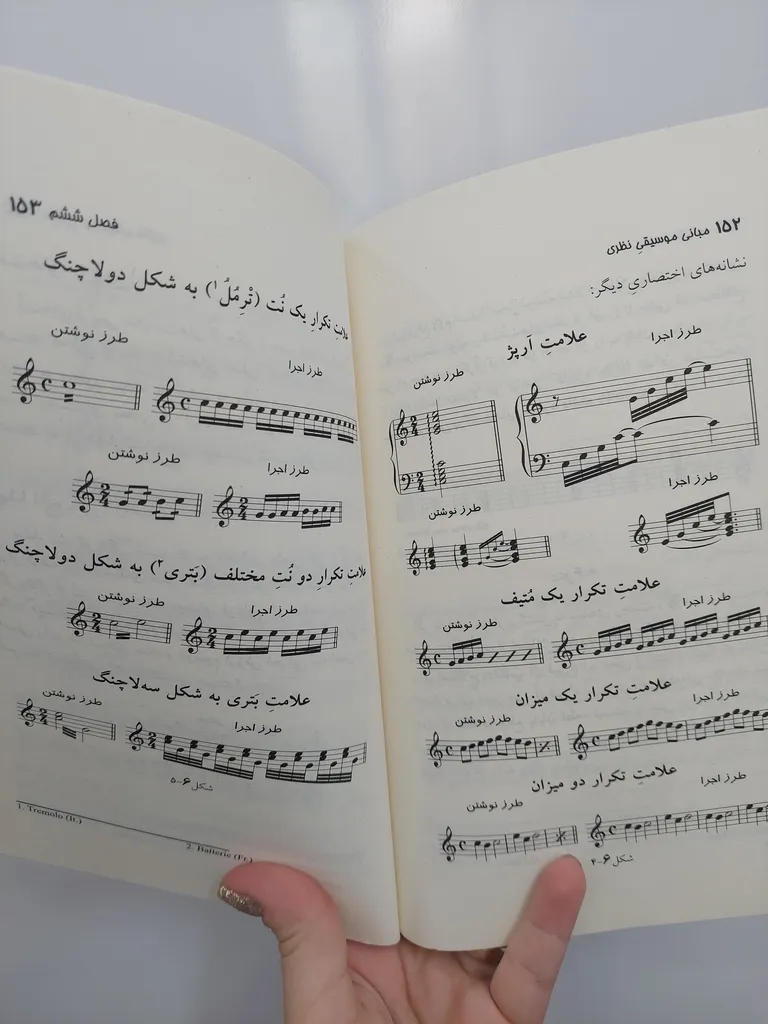 ۱۵۲ مبانی موسیقیِ نظری
نشانه‌های اختصاریِ دیگر:
علامتِ آرپژ
طرز اجرا
طرز نوشتن
طرز اجرا
طرز نوشتن
علامتِ تکرار یک مُتیف
طرز اجرا
طرز نوشتن
علامتِ تکرار یک میزان
طرز اجرا
طرز نوشتن
علامتِ تکرار دو میزان
طرز اجرا
طرز نوشتن
شکل ۶-۴
فصل ششم ۱۵۳
علامتِ تکرارِ یک نُت (تْرِمُلُ ۱) به شکل دولاچنگ
طرز اجرا
طرز نوشتن
طرز اجرا
طرز نوشتن
علامتِ تکرارِ دو نُتِ مختلف (بَتری ۲) به شکل دولاچنگ
طرز اجرا
طرز نوشتن
علامتِ بَتری به شکل سه‌لاچنگ
طرز اجرا
طرز نوشتن
شکل ۶-۵
1. Tremolo (It.)
2. Batterie (Fr.)